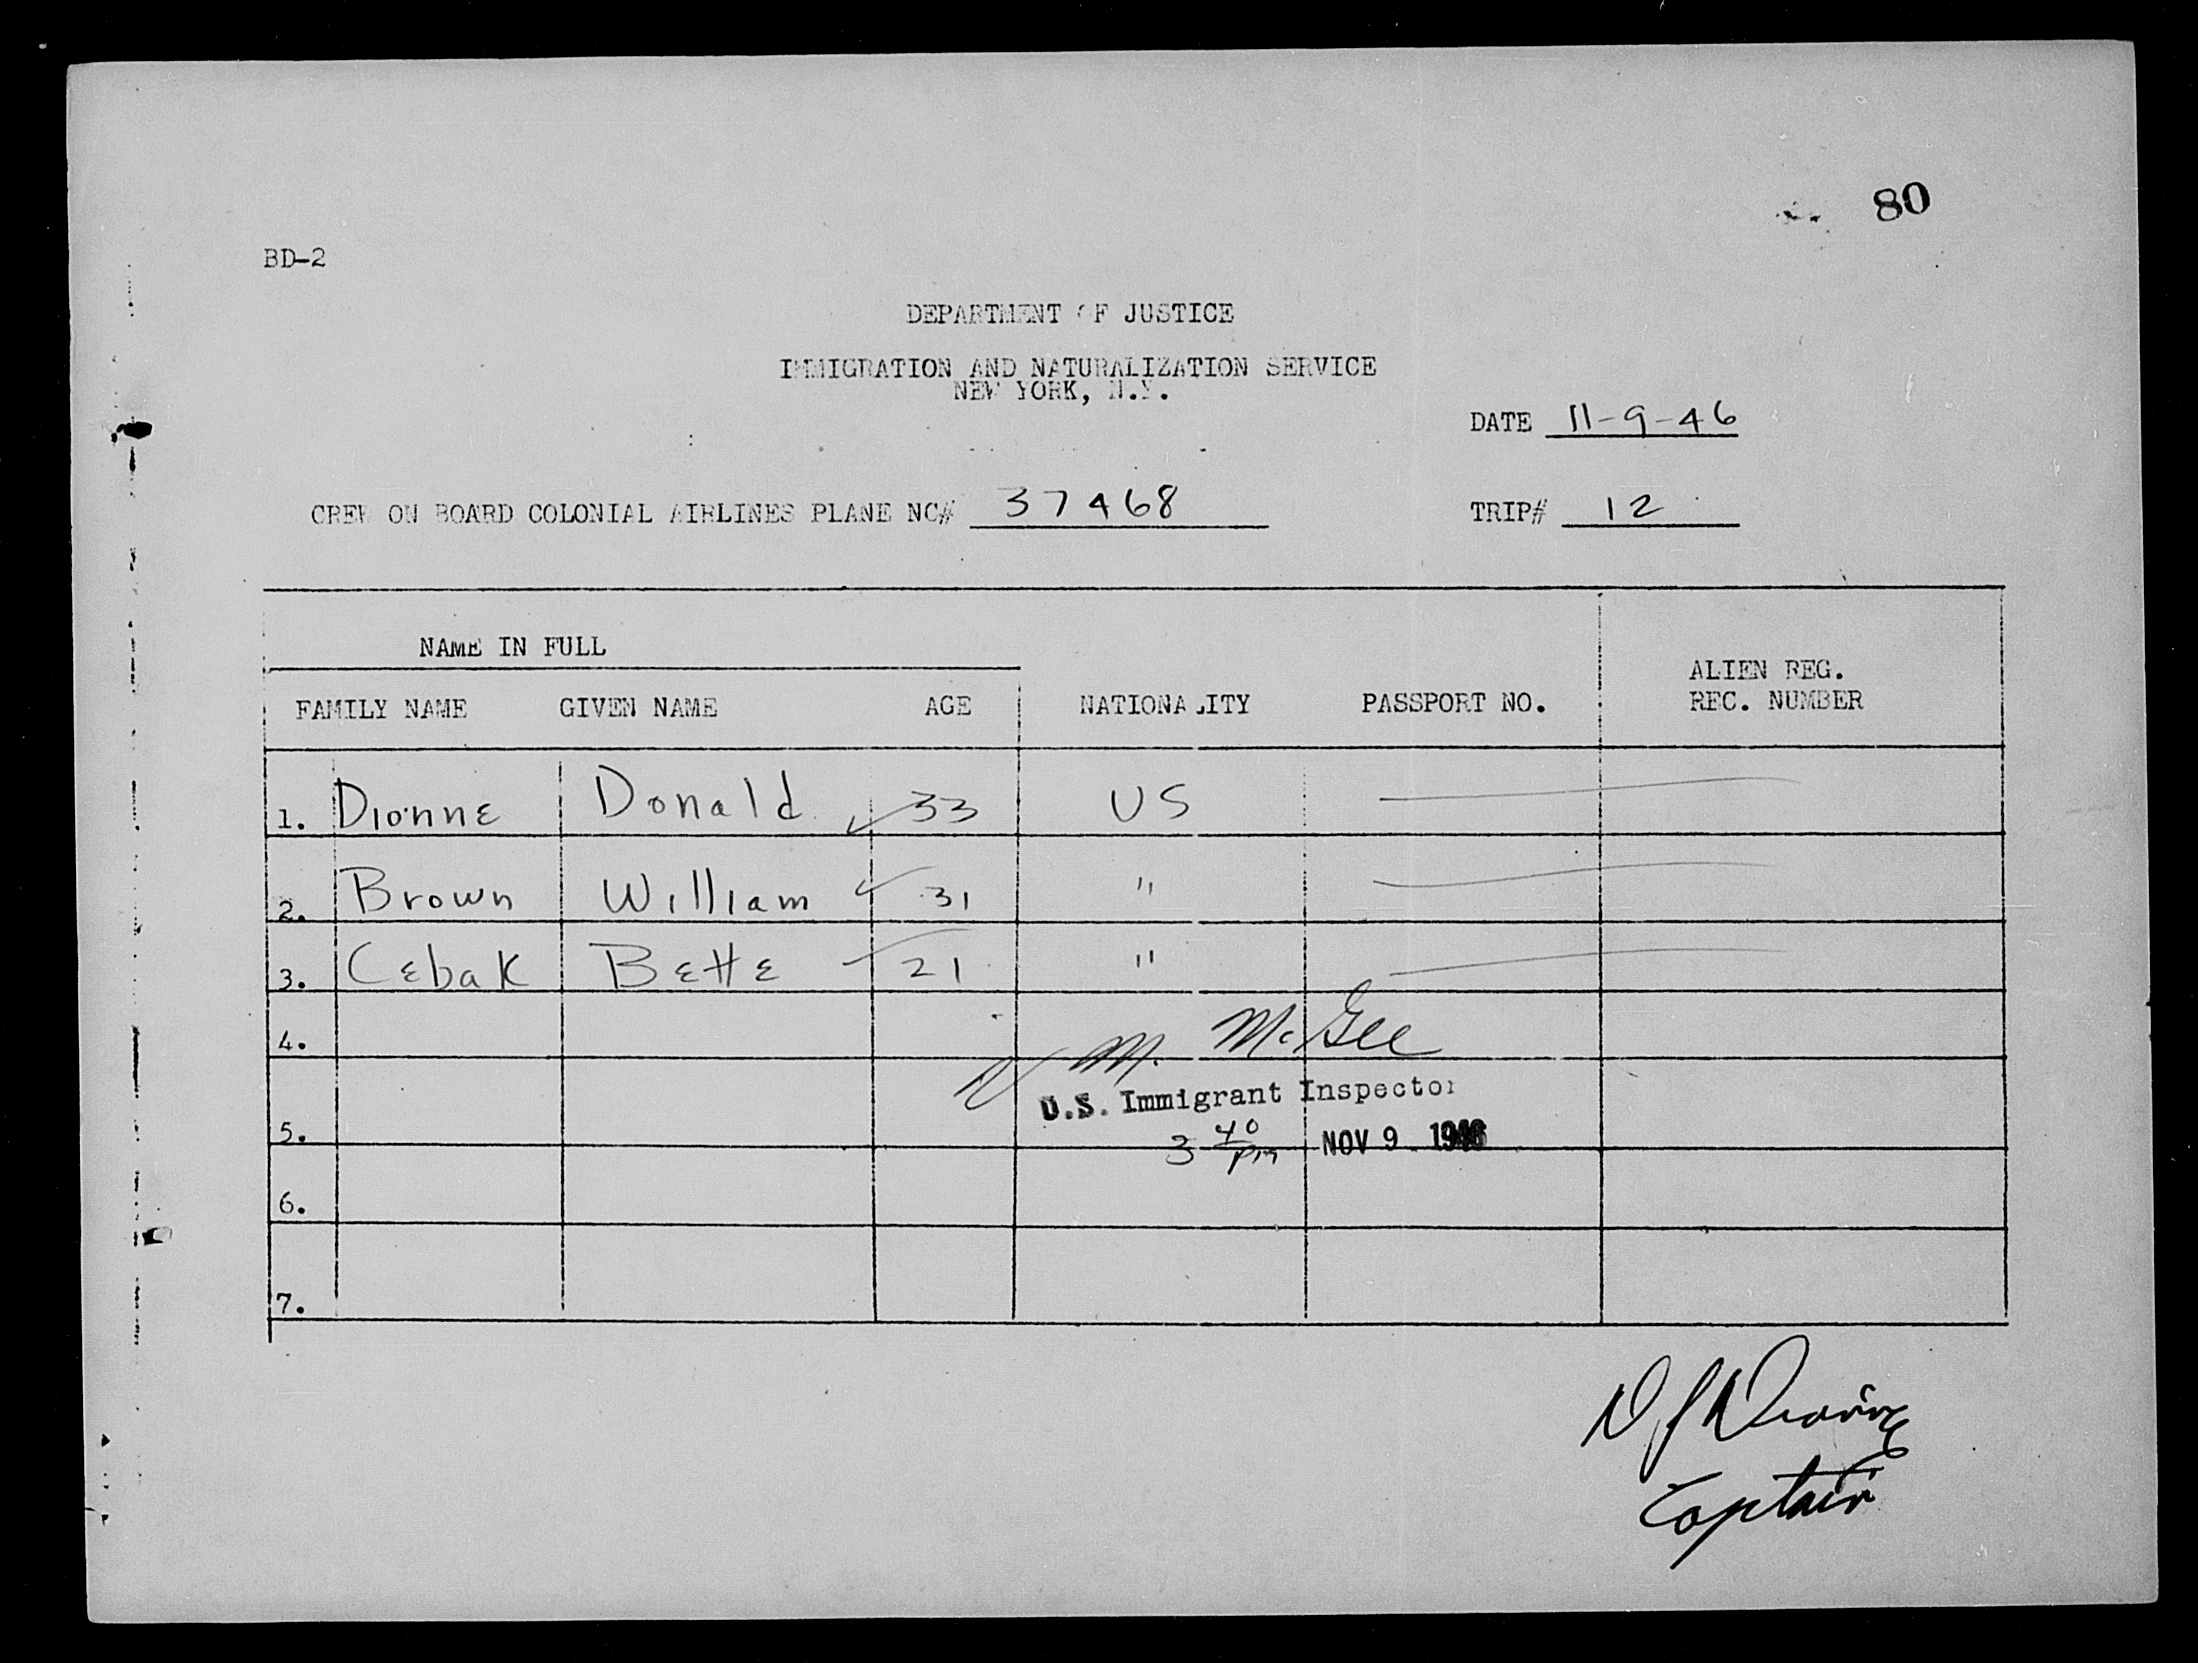 80
BD-2
DEPARTMENT OF JUSTICE
IMMIGRATION AND NATURALIZATION SERVICE
NEW YORK, N.Y.
DATE 11-9-46
CREW ON BOARD COLONIAL AIRLINES PLANE NC# 37468 TRIP# 12
NAME IN FULL
FAMILY NAME GIVEN NAME AGE NATIONALITY PASSPORT NO. ALIEN REG. REC. NUMBER
1. Dionne Donald ✓ 33 US
2. Brown William ✓ 31 "
3. Cebak Bette ✓ 21 "
4.
M. McGee
U.S. Immigrant Inspector
5.
3 40 pm NOV 9 1946
6.
7.
D J Dionne
Captain